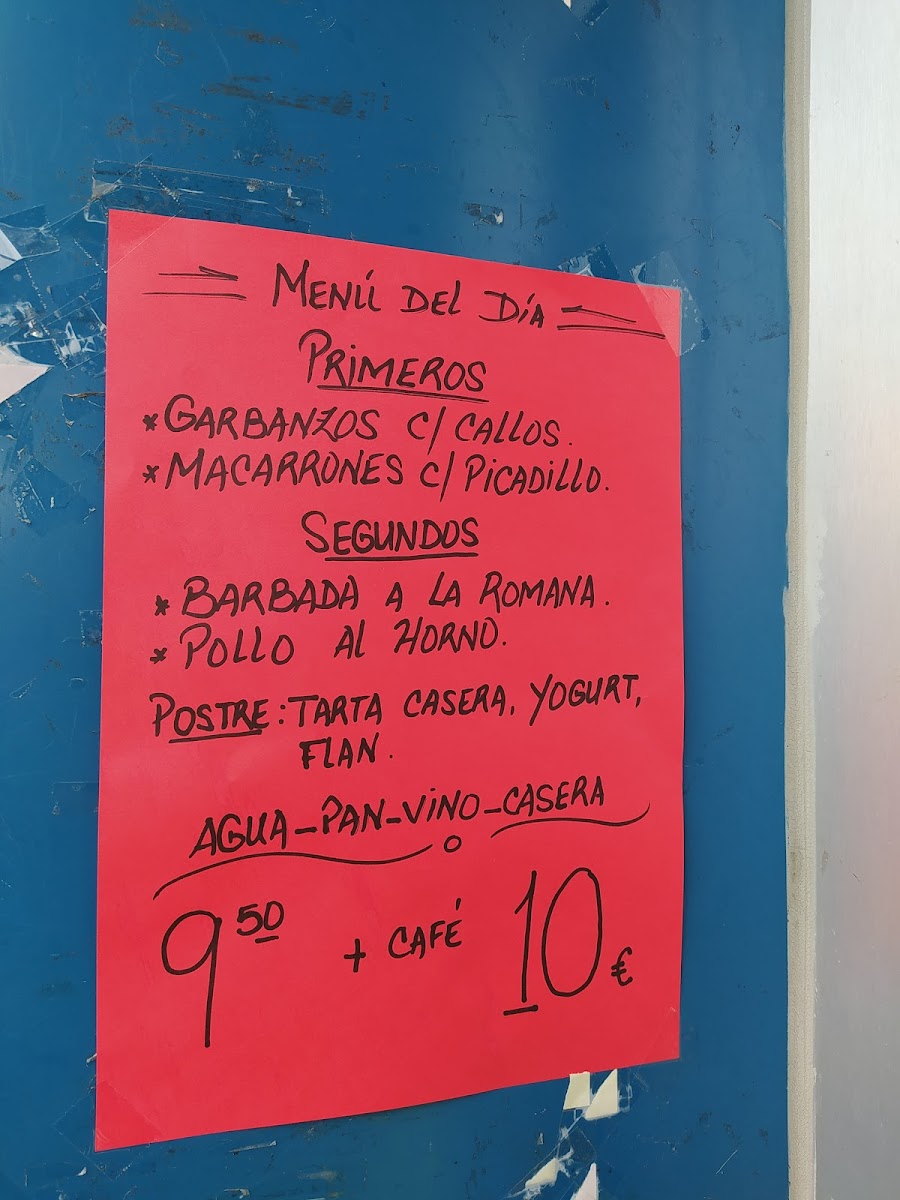 MENÚ DEL DÍA
PRIMEROS
* GARBANZOS C/ CALLOS.
* MACARRONES C/ PICADILLO.
SEGUNDOS
* BARBADA A LA ROMANA.
* POLLO AL HORNO.
POSTRE: TARTA CASERA, YOGURT,
FLAN.
AGUA-PAN-VINO-CASERA
9 50 + CAFÉ 10 €